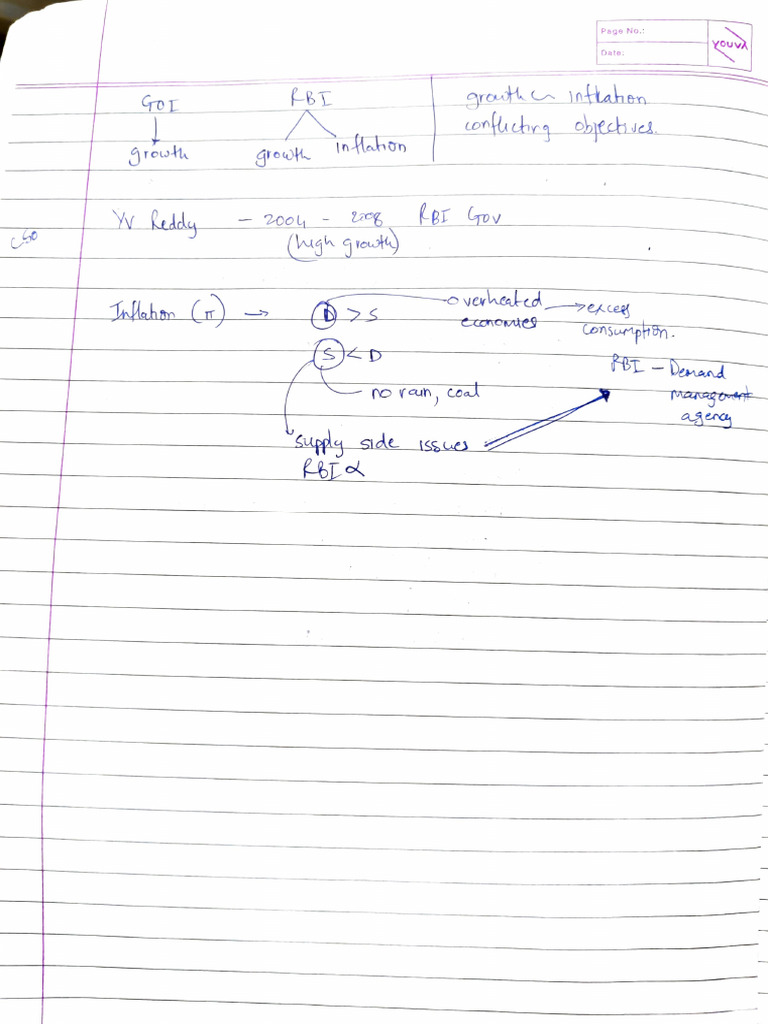 Page No.:
Date:
youva
GOI
RBI
growth inflation
conflicting objectives.
growth
growth
inflation
YV Reddy - 2004 - 2008 RBI Gov
(high growth)
Inflation (π) → D > S
overheated economies → excess consumption.
S < D
no rain, coal
RBI - Demand
management
agency
supply side issues
RBI